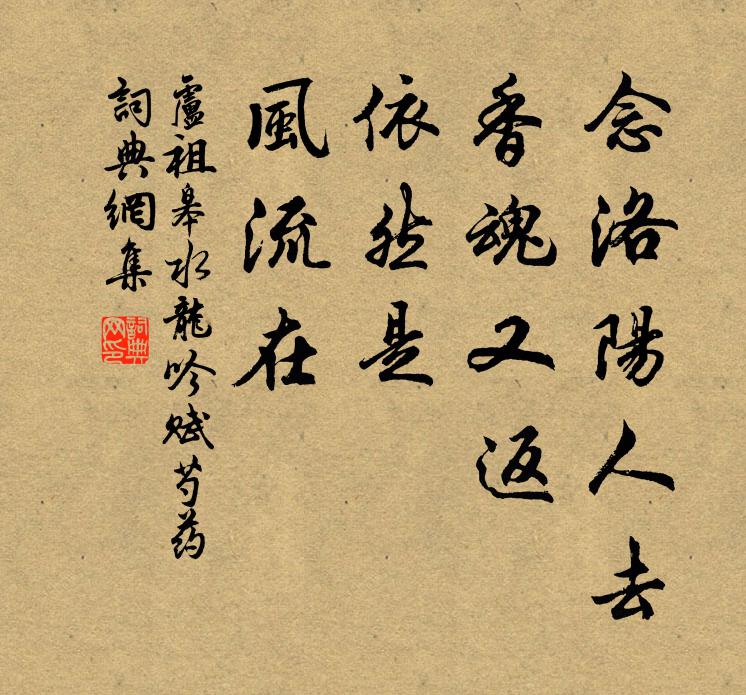 念洛陽人去
香魂又返
依然是
風流在
盧祖皋水龍吟賦芍药
詞典網集
詞典网印